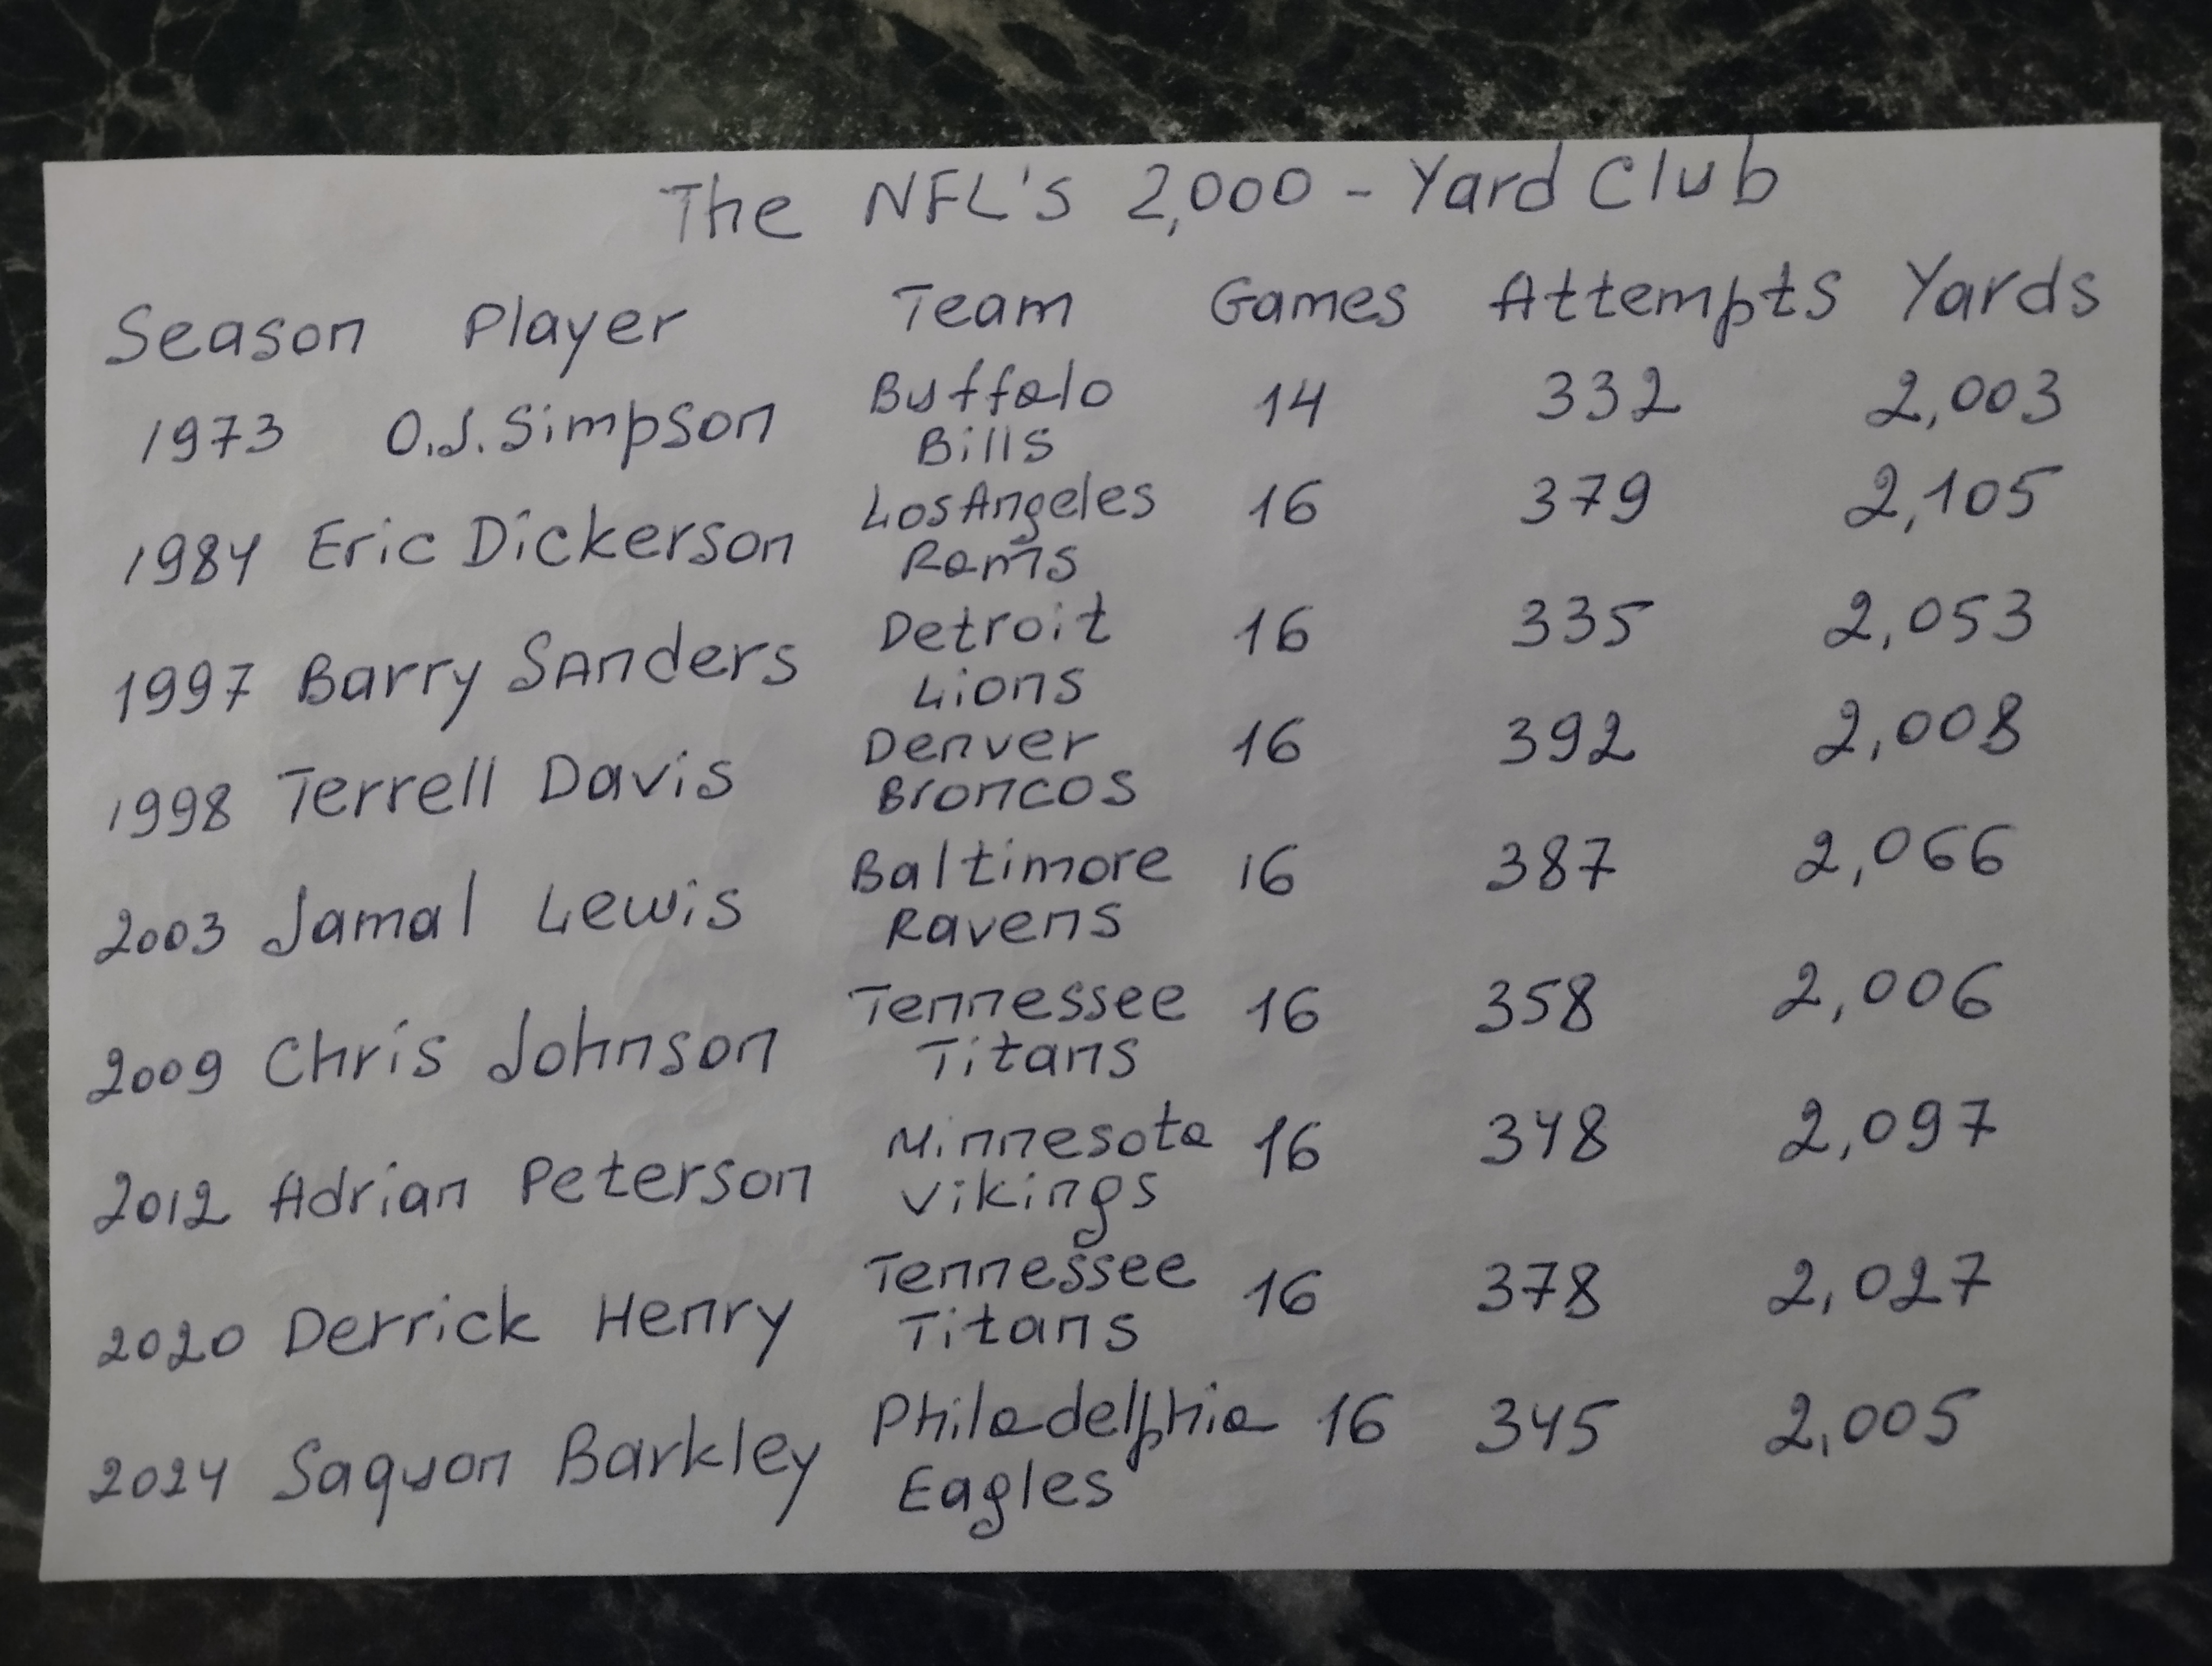 The NFL's 2,000 - Yard Club
Season Player Team Games Attempts Yards
1973 O.J. Simpson Buffalo Bills 14 332 2,003
1984 Eric Dickerson Los Angeles Rams 16 379 2,105
1997 Barry Sanders Detroit Lions 16 335 2,053
1998 Terrell Davis Denver Broncos 16 392 2,008
2003 Jamal Lewis Baltimore Ravens 16 387 2,066
2009 Chris Johnson Tennessee Titans 16 358 2,006
2012 Adrian Peterson Minnesota Vikings 16 348 2,097
2020 Derrick Henry Tennessee Titans 16 378 2,027
2024 Saquon Barkley Philadelphia Eagles 16 345 2,005